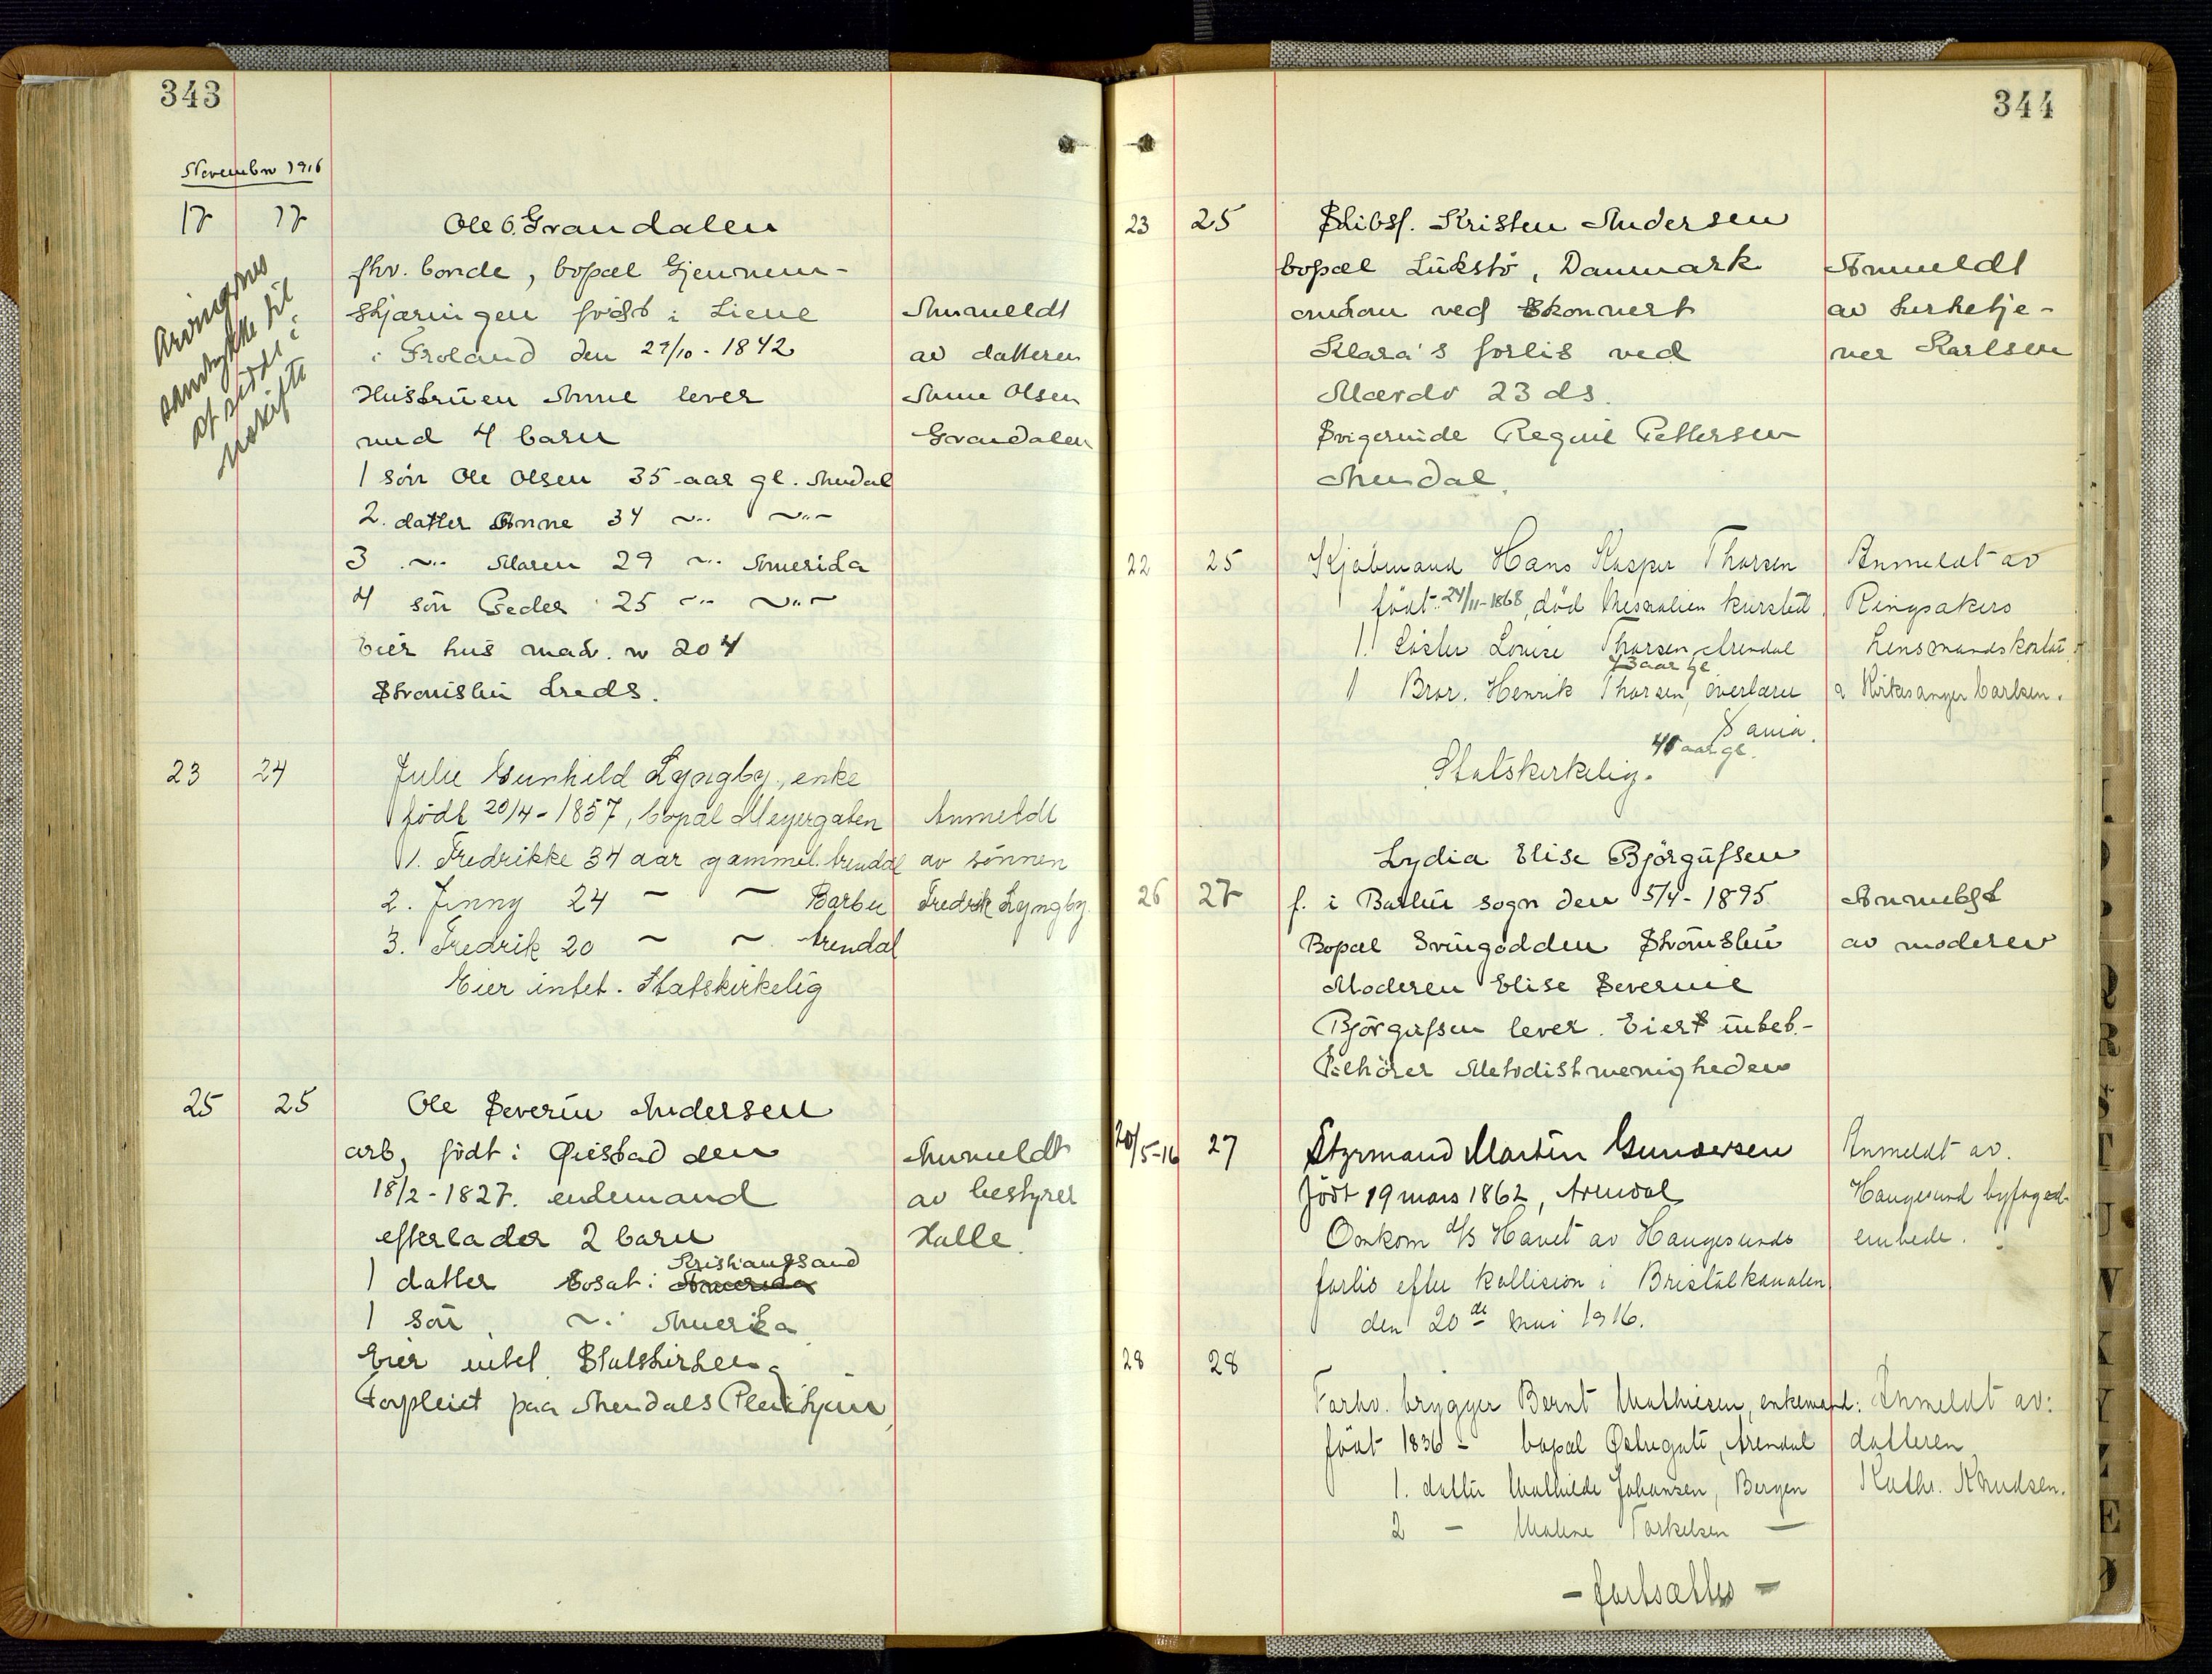 343
November 1916
17 17 Ole O. Grandalen
fhv. bonde, bopæl Gjennem-
skjæringen født i Liene Anmeldt
i Froland den 27/10 - 1842 av datteren
Hustruen Anne lever Anne Olsen
med 4 barn Grandalen
Arvingenes
samtykke til
at sidde i
uskifte
1 sön Ole Olsen 35 aar gl. Arendal
2. datter Anne 34 -"- -"-
3 -"- Maren 29 -"- Amerika
4 sön Peder 25 -"- -"-
Eier hus matr. nr 204
Strömsbu kreds.
23 24 Julie Gunhild Lyngby, enke
født 20/4 - 1857, bopæl Meyergaten Anmeldt
1. Fredrikke 34 aar gammel. Arendal av sönnen
2. Jinny 24 - - Barbu Fredrik Lyngby.
3. Fredrik 20 - - Arendal
Eier intet. Statskirkelig
25 25 Ole Severin Andersen
arb, født i Øiestad den Anmeldt
18/2 - 1827. enkemand av bestyrer
efterlader 2 barn Halle.
1 datter bosat i Amerika Kristianssand
1 sön -"- i Amerika
Eier intet. Statskirken
Forpleiet paa Arendals Pleiehjem
344
23 25 Skibsf. Kristen Andersen
bopæl Lükstö, Danmark Anmeldt
omkom ved Skonnert av kirketje-
Klara's forlis ved ner Karlsen
Mærdö 23 ds.
Svigerinde Regine Pettersen
Arendal.
22 25 Kjøbmand Hans Kasper Thorsen Anmeldt av
født 24/11-1868, død Mesnalien kursted. Ringsakers
1. Søster Louise Thorsen, Arendal Lensmandskontor
43 aar gl
1 Bror. Henrik Thorsen, overlærer v Kirkesanger Carlsen.
Vania.
45 aar gl.
Statskirkelig.
Lydia Elise Björgulfsen
26 27 f. i Barbu sogn den 5/4 - 1895 Anmeldt
Bopæl Svingodden Strömsbu av moderen
Moderen Elise Severine
Björgulfsen lever. Eier intet.-
Tilhörer Metodistmenigheden
20/5-16 27 Styrmand Martin Gundersen Anmeldt av.
født 19 mars 1862, Arendal Haugesund byfoged-
Omkom d/s Havet av Haugesunds embede.
forlis efter kollision i Bristolkanalen
den 20de mai 1916.
28 28
Forhv. brygger Bernt Mathiesen, enkemand: Anmeldt av:
født 1836 - bopæl Østregate, Arendal datteren
1. datter Mathilde Johansen, Bergen Kathr. Knudsen.
2 - Maline Torkelsen -
- fortsættes -